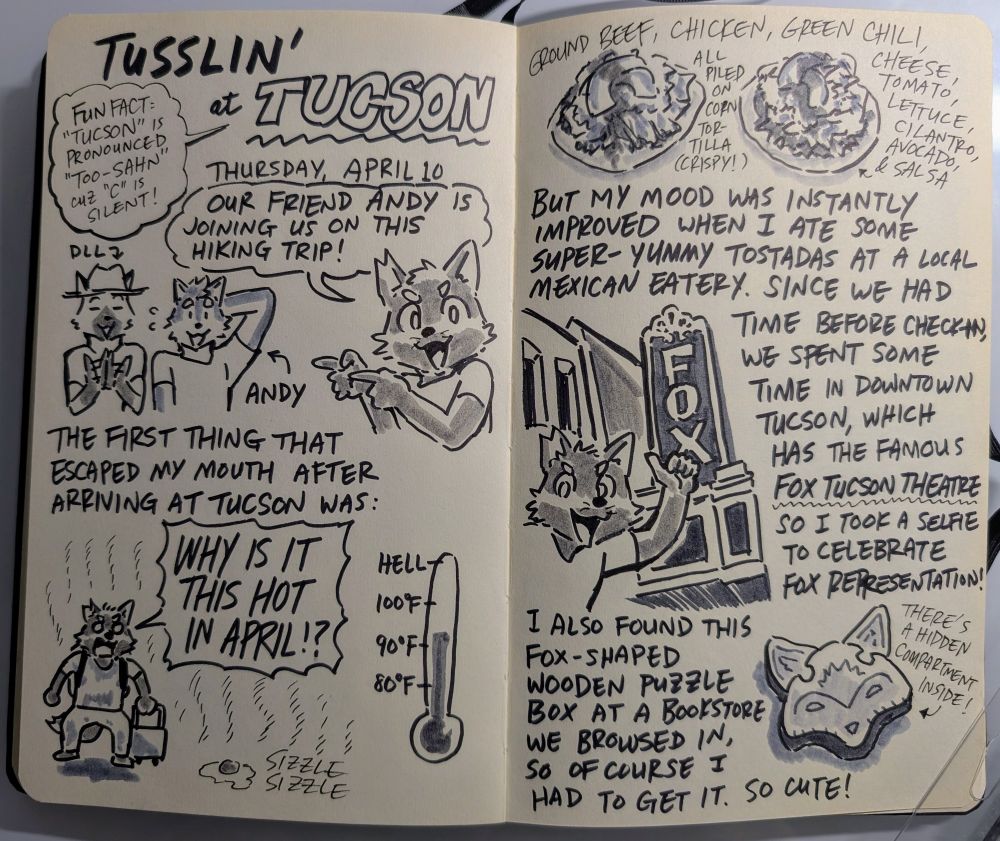 TUSSLIN'
at TUCSON
FUN FACT:
"TUCSON" IS
PRONOUNCED
"TOO-SAHN"
CUZ "C" IS
SILENT!
THURSDAY, APRIL 10
OUR FRIEND ANDY IS
JOINING US ON THIS
HIKING TRIP!
DLL
ANDY
THE FIRST THING THAT
ESCAPED MY MOUTH AFTER
ARRIVING AT TUCSON WAS:
WHY IS IT
THIS HOT
IN APRIL!?
HELL
100°F
90°F
80°F
SIZZLE
SIZZLE
GROUND BEEF, CHICKEN, GREEN CHILI,
CHEESE,
TOMATO,
LETTUCE,
CILANTRO,
AVOCADO,
& SALSA
ALL
PILED
ON
CORN
TOR-
TILLA
(CRISPY!)
BUT MY MOOD WAS INSTANTLY
IMPROVED WHEN I ATE SOME
SUPER-YUMMY TOSTADAS AT A LOCAL
MEXICAN EATERY. SINCE WE HAD
TIME BEFORE CHECK-IN,
WE SPENT SOME
TIME IN DOWNTOWN
TUCSON, WHICH
HAS THE FAMOUS
FOX TUCSON THEATRE
SO I TOOK A SELFIE
TO CELEBRATE
FOX REPRESENTATION!
FOX
I ALSO FOUND THIS
FOX-SHAPED
WOODEN PUZZLE
BOX AT A BOOKSTORE
WE BROWSED IN,
SO OF COURSE I
HAD TO GET IT. SO CUTE!
THERE'S
A HIDDEN
COMPARTMENT
INSIDE!